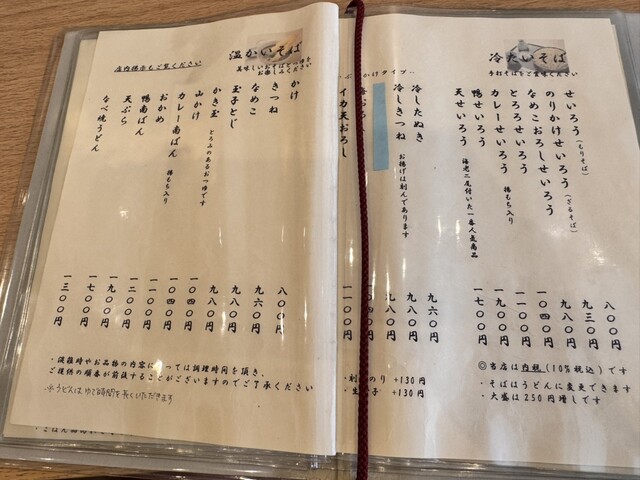 冷たいそば
手打そばをご賞味ください
せいろう（もりそば） 八〇〇円
のりかけせいろう（ざるそば） 九三〇円
なめこおろしせいろう 九八〇円
とろろせいろう 一〇四〇円
カレーせいろう 揚もち入り 一一〇〇円
鴨せいろう 一九〇〇円
天せいろう 海老二尾付いた一番人気商品 一七〇〇円
かけタイプ‥
冷したぬき 九六〇円
冷しきつね お揚げは刻んであります 九八〇円
イカ天おろし 一一〇〇円
◎当店は内税(10%税込)です
・そばはうどんに変更できます
・大盛は250円増しです
のり +130円
+130円
温かいそば
美味しいおそばとつゆを
お楽しみください
店内揚示もご覧ください
かけ 八〇〇円
きつね 九六〇円
なめこ 九八〇円
玉子とじ 九八〇円
かき玉 とろふのあるおつゆです 一〇四〇円
山かけ 一〇四〇円
カレー南ばん 揚もち入り 一一〇〇円
おかめ 一二〇〇円
鴨南ばん 一九〇〇円
天ぷら 一七〇〇円
なべ焼うどん 一三〇〇円
・混雑時やお品物の内容によっては調理時間を頂き、
ご提供の順番が前後することがございますのでご了承ください
※うどんは、ゆで時間を長くいただきます